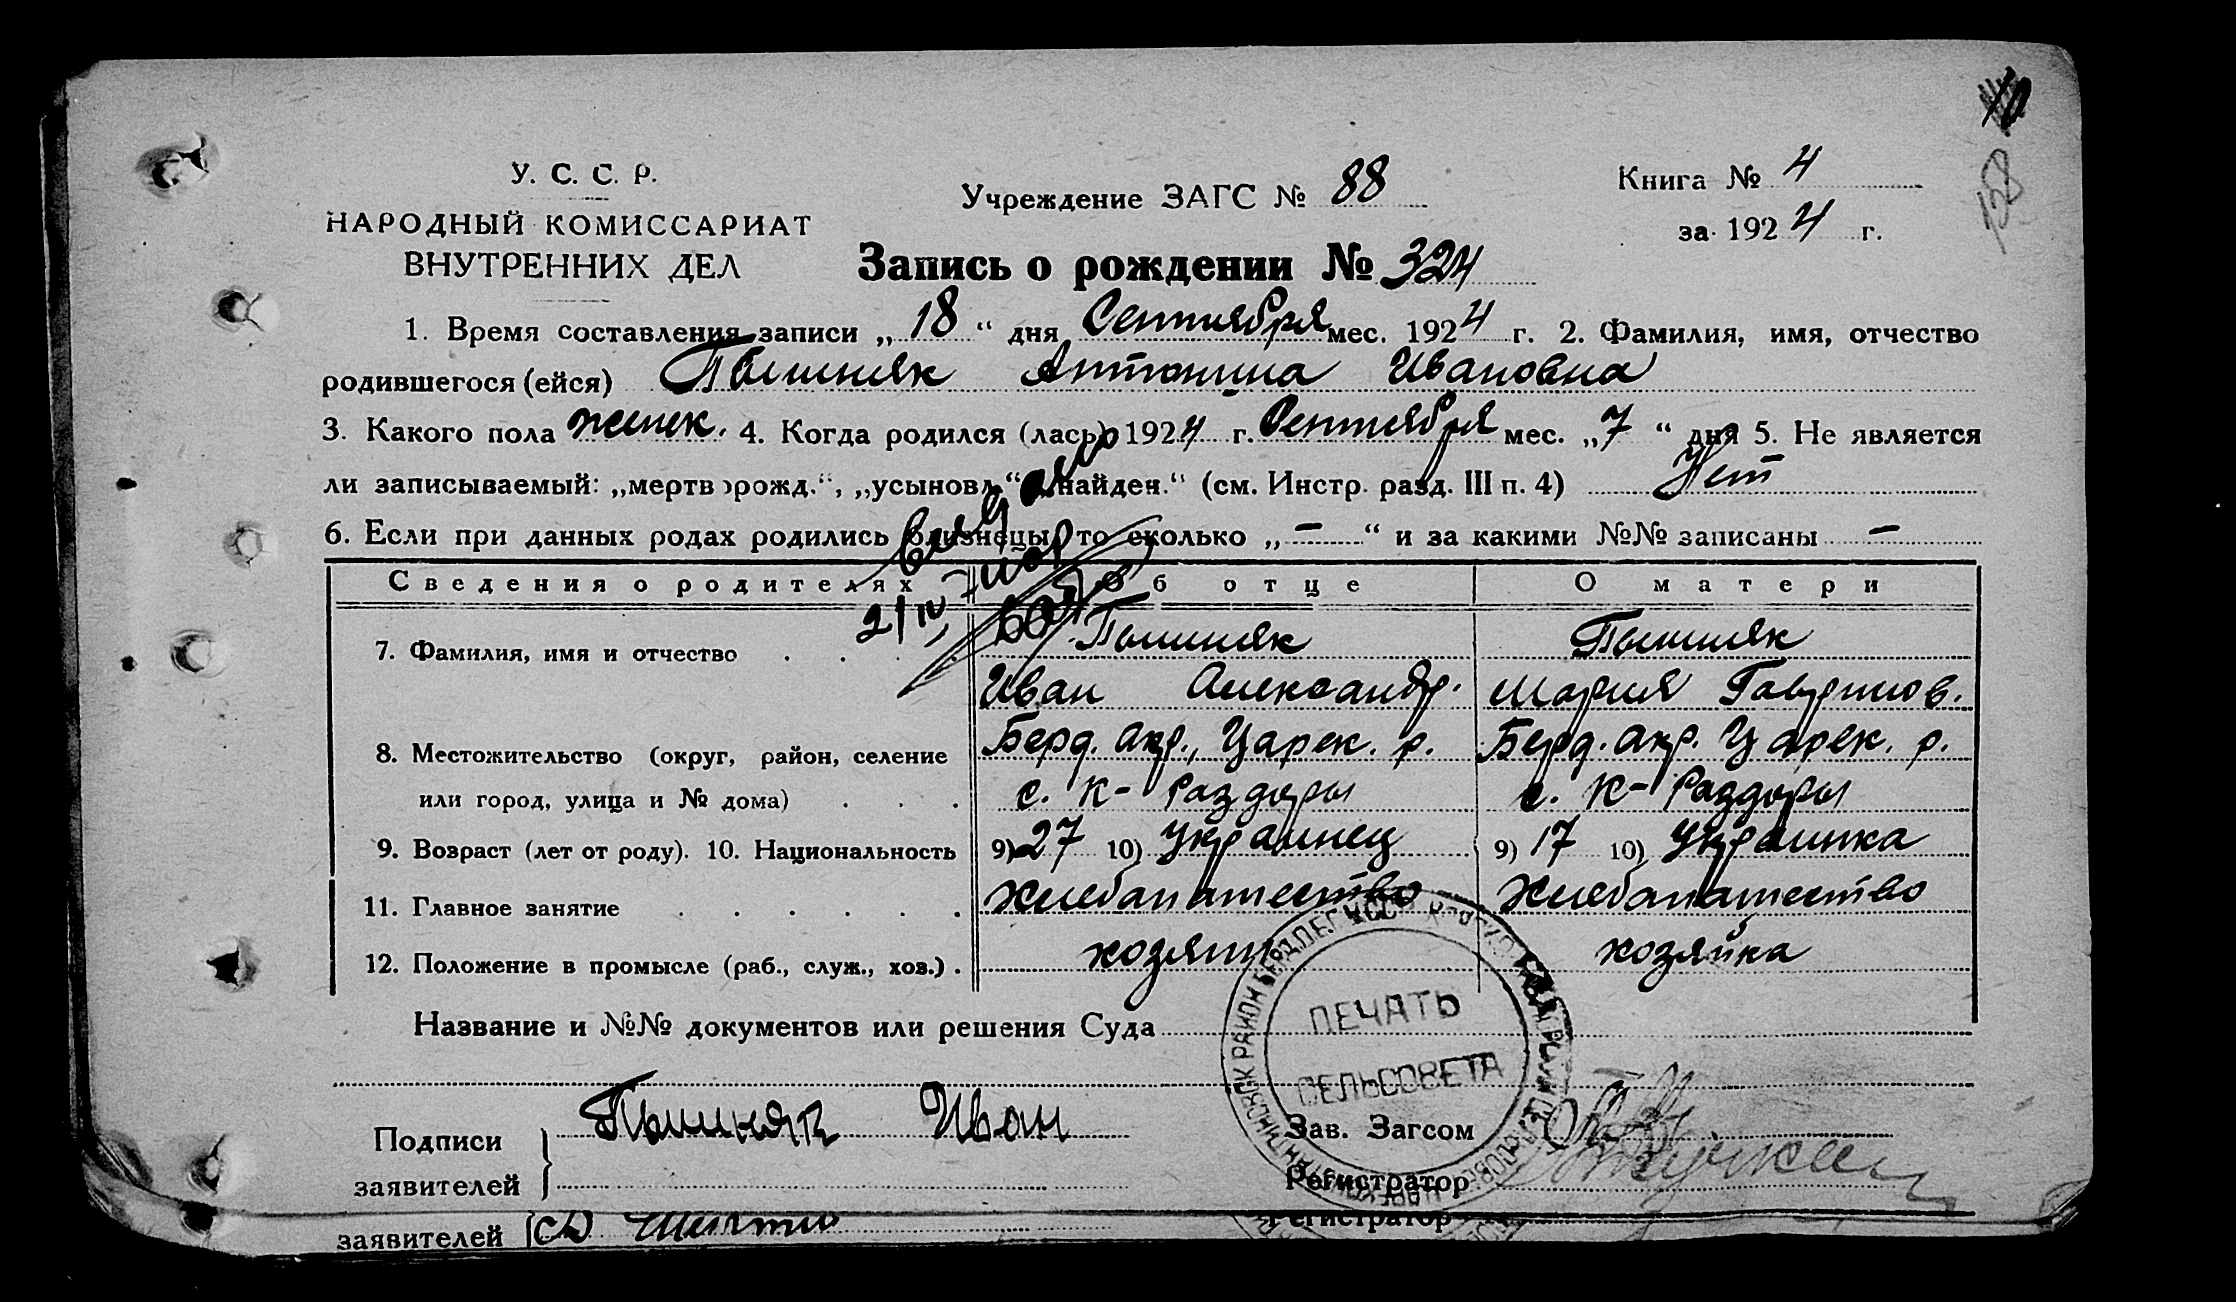 У. С. С. Р.
НАРОДНЫЙ КОМИССАРИАТ
ВНУТРЕННИХ ДЕЛ
Учреждение ЗАГС № 88
Книга № 4
за 1924 г.
158
Запись о рождении № 324
1. Время составления записи „18“ дня Сентября мес. 1924 г. 2. Фамилия, имя, отчество
родившегося (ейся) Пышняк Антонина Ивановна
3. Какого пола женск. 4. Когда родился (лась) 1924 г. Сентября мес. „7“ дня 5. Не является
ли записываемый: „мертворожд.“, „усыновл.“ „найден.“ (см. Инстр. разд. III п. 4) Нет
6. Если при данных родах родились близнецы, то сколько „—“ и за какими №№ записаны —
Сведения о родителях Об отце О матери
2/IV
7. Фамилия, имя и отчество . . . . Пышняк Пышняк
Иван Александр. Мария Гавриллов.
8. Местожительство (округ, район, селение Берд. окр., Царек. р. Берд. окр. Царек. р.
или город, улица и № дома) . . . с. К-Раздоры с. К-Раздоры
9. Возраст (лет от роду). 10. Национальность 9) 27 10) Украинец 9) 17 10) Украинка
11. Главное занятие . . . . . . Хлебопашество Хлебопашество
12. Положение в промысле (раб., служ., хоз.) . хозяин хозяйка
Название и №№ документов или решения Суда
ПЕЧАТЬ
СЕЛЬСОВЕТА
Подписи
заявителей
Пышняк Иван
Зав. Загсом
Регистратор
заявителей
Регистратор